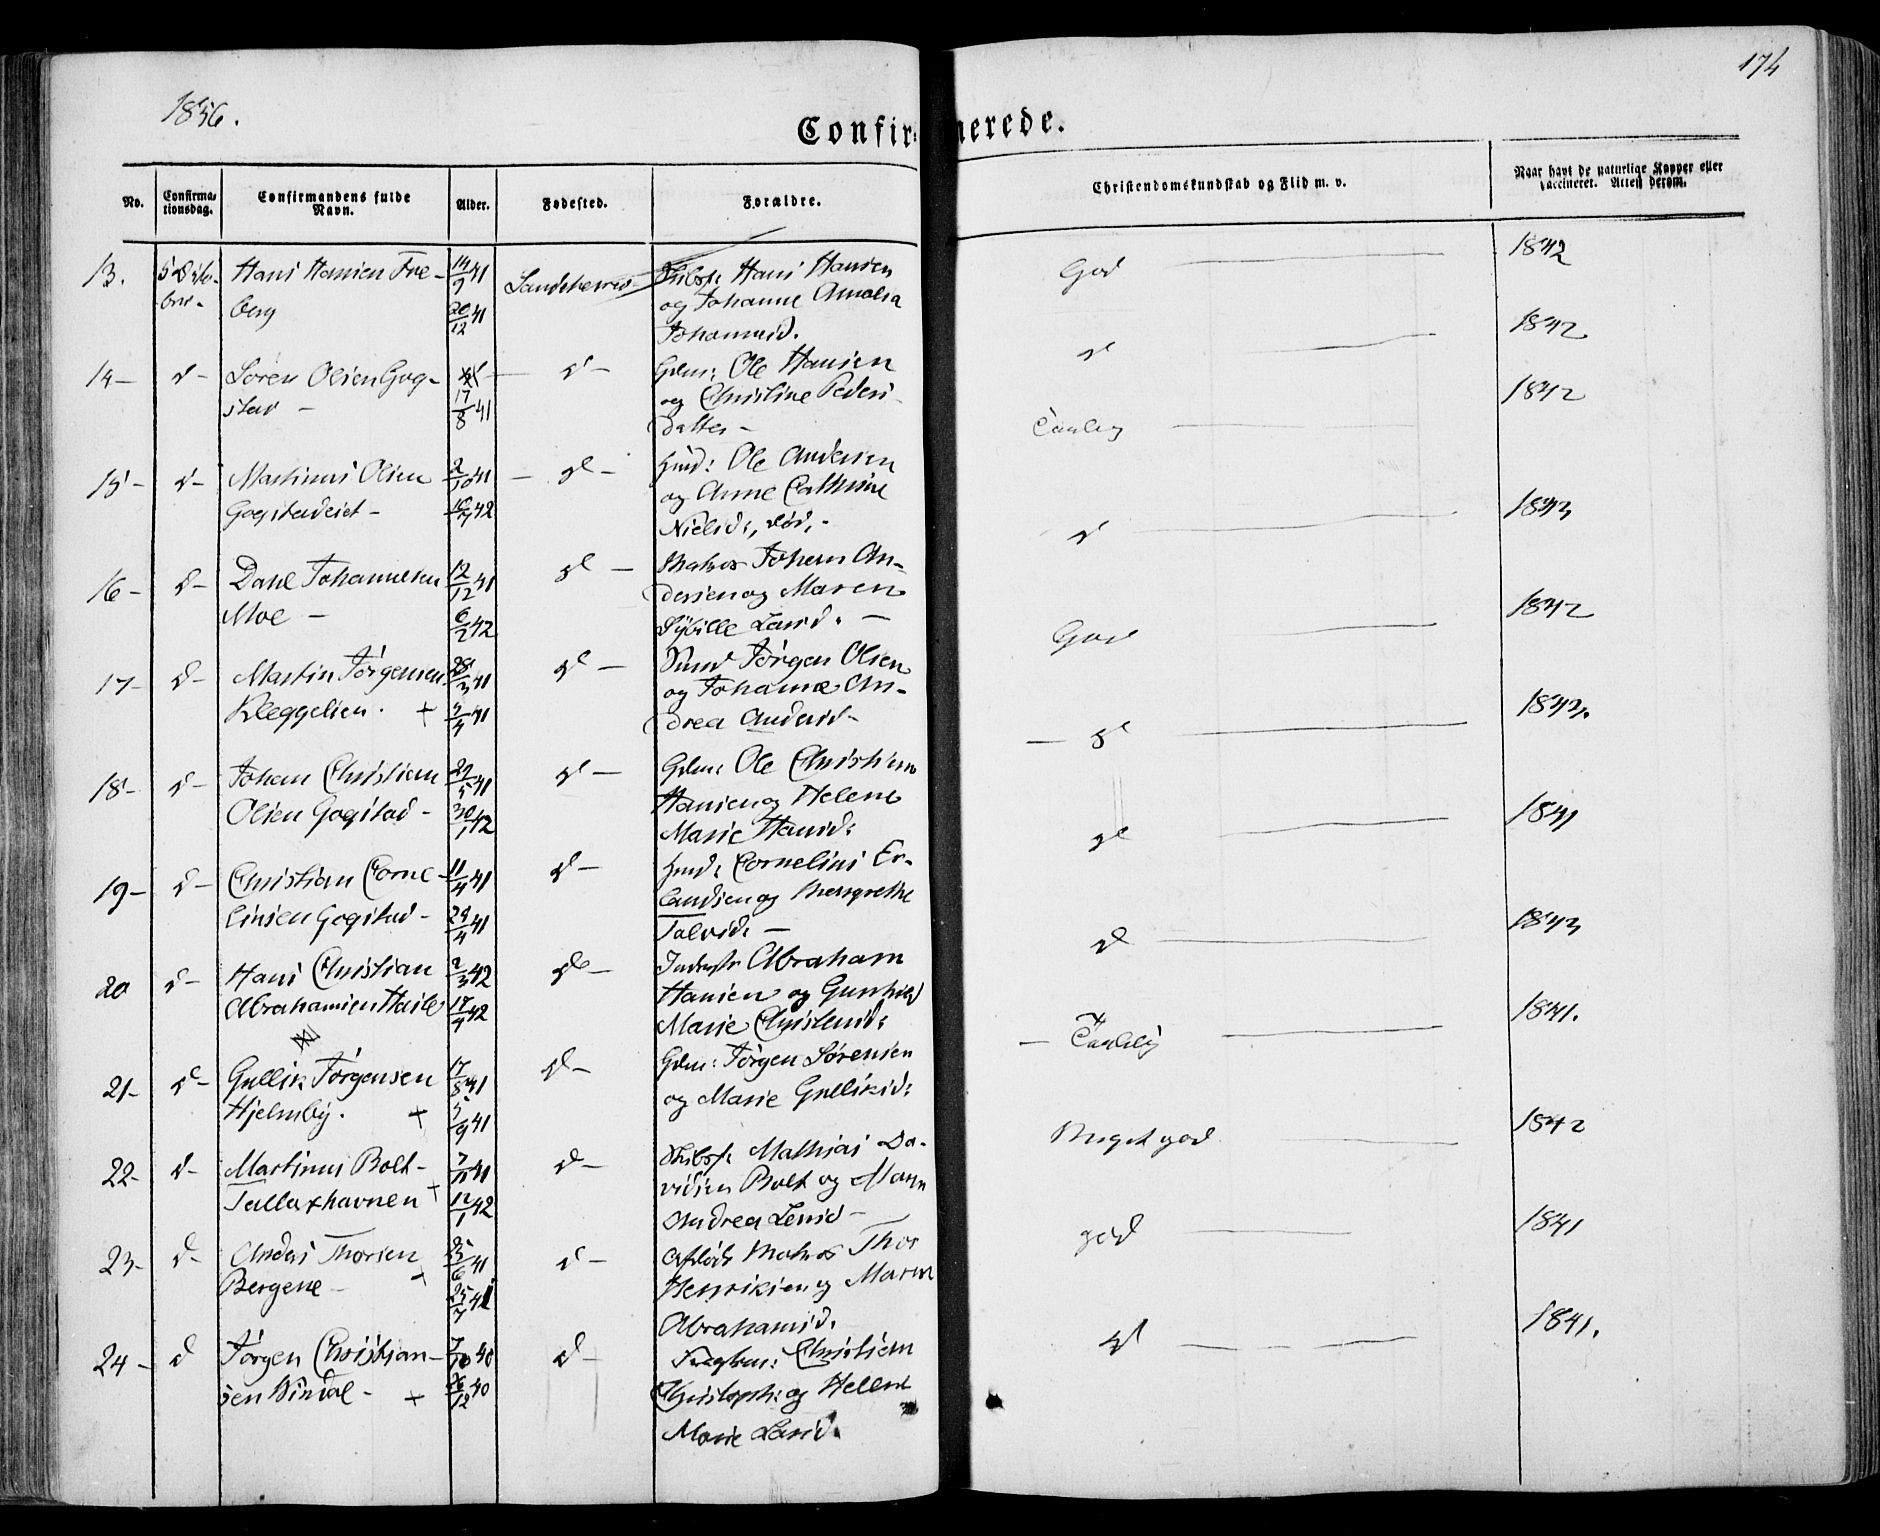 174
1856.
Confirmerede.
No.
Confirma-
tionsdag.
Confirmandens fulde
Navn.
Alder.
Fødested.
Forældre.
Christendomskundskab og Flid m. v.
Naar havt de naturlige Kopper eller
vaccineret. Attest derom.
13. 5 Octo- Hans Hansen Fre- 14/9 41 Sandeherred Skibsf: Hans Hansen God 1842
ber - berg 20/12 41 og Johanne Amalia
Johannesd.
14 - d - Søren Olsen Gog- d - Gdm: Ole Hansen d 1842
stad - 17/8 41 og Christine Peders
datter -
15 - d - Martinus Olsen 2/10 41 - d - Hmd: Ole Andersen Taalig 1842
Gogstadeiet - 10/7 42 og Anne Cathrine
Nielsd:, død. -
16 - d - Dahl Johannesen 12/12 41 d - Matros Johan An- d 1843
Moe - 6/2 42 dersen og Maren
Sybille Larsd. -
17 - d - Martin Jørgensen 28/3 41 d - Jørgen Olsen God 1842
Kleggelien. + 4/4 41 og Johanne An-
drea Andersd -
18 - d - Johan Christian 29/5 41 d - Gdm: Ole Christian - d 1843.
Olsen Gogstad - 30/1 42 Hansen og Helene
Marie Hansd:
19 - d - Christian Corne- 11/4 41 d - Hmd: Cornelius Er- d 1841
liusen Gogstad - 24/4 41 landsen og Mergrethe
Tolvsd: -
20 d - Hans Christian 2/3 42 d - Inderst: Abraham d 1843
Abrahamsen Hasle 17/4 42 Hansen og Gunhild
Marie Christensd:
21 - d - Gullik Jørgensen 17/8 41 d - Gdm: Jørgen Sørensen - Taalelig 1841.
Hjelmby. + 5/9 41 og Marie Gulliksd:
22 - d - Martinus Bolt - 7/11 41 d - Skibsf: Mathias Da- Meget god 1842
Tallaxhavnen + 12/1 42 vidsen Bolt og Maren
Andrea Lensd -
23 - d - Anders Thorsen 25/6 41 d - Afdøde Matros Thor god 1841
Bergene - + 25/7 41 Henriksen og Maren
Abrahamsd.
24 - d Jørgen Christian- 7/10 40 d - Christian d 1841.
sen Vindal - + 26/12 40 Christoph: og Helene
Marie Larsd.